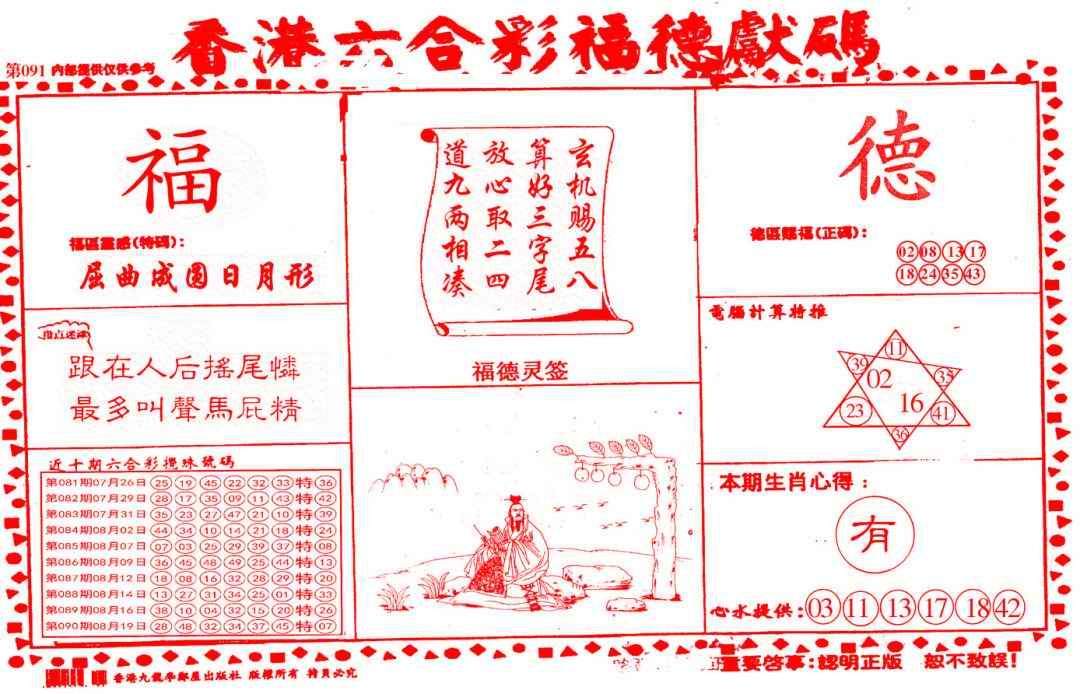 香港六合彩福德獻碼
第091 内部提供仅供参考
福
福區靈感(特碼):
屈曲成圆日月形
指点迷津
跟在人后摇尾憐
最多叫聲馬屁精
近十期六合彩攪珠號碼
第081期07月26日 25 19 45 22 32 33 特 36
第082期07月29日 28 17 35 09 11 43 特 42
第083期07月31日 35 23 27 47 21 10 特 39
第084期08月02日 44 34 10 14 21 18 特 24
第085期08月07日 07 03 25 29 39 37 特 08
第086期08月09日 36 45 48 49 25 44 特 13
第087期08月12日 18 08 16 32 28 29 特 20
第088期08月14日 13 27 31 34 25 01 特 33
第089期08月16日 38 10 04 32 15 20 特 26
第090期08月19日 28 48 32 34 37 45 特 07
玄机赐五八
算好三字尾
放心取二四
道九两相凑
福德灵签
德
德區賜福(正碼):
02 08 13 17
18 24 35 43
電腦計算特推
11
39
33
02
16
23
41
36
本期生肖心得:
有
心水提供:03 11 13 17 18 42
重要啓事:認明正版 恕不致誤!
版權所有